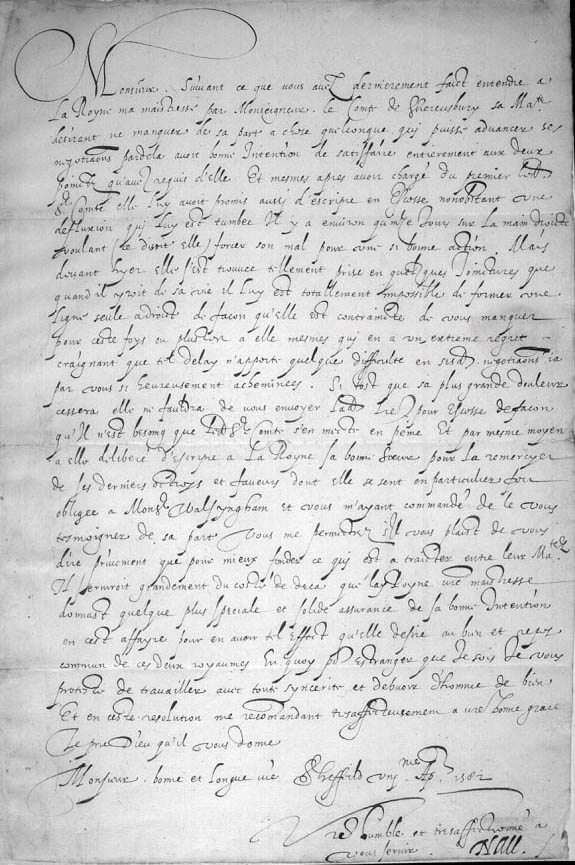 Monsieur. Suivant ce que vous avez dernierement faict entendre a
La Royne ma maistresse par Monseigneur le Comte de Shreusbury sa Mate
desirant ne manquer de sa part a chose quelconque qui puisse advancer ses
negotiaons pardela avoit bonne Intention de satisfaire entierement aux deux
pointz qu'avez requis d'elle Et mesmes apres avoir chargé du premier led.
Sr Comte elle luy avoit promis aussi d'escripre en Escosse nonobstant une
defluxion qui luy est tumbee Il y a environ quinze Jours sur la main droicte
voulant (ce disoit elle) forcer son mal pour une si bonne action Mais
devant hyer elle s'est trouvee tellement prise en quelques Joinctures que
quand il yroit de sa vie il luy est totallement impossible de former une
ligne seule adroit de facon qu'elle est contraincte de vous manquer
pour ceste foys ou plustost a elle mesmes qui en a un extreme regret
craignant que tel delay n'apporte quelque difficulté en sesd. negotiaons ja
par vous si heureusement acheminees. Si tost que sa plus grande douleur
cessera elle ne fauldra de vous envoyer lad. pour Escosse de facon
qu'Il n'est besoing que led. Sr Comte s'en mecte en peine Et par mesme moyen
a elle deliberé d'escripre a La Royne sa bonne soeur pour la remercyer
de ses derniers octroys et faveurs dont elle se sent en particulier fort
obligee a Monsr Walsyngham et vous m'ayant commandé de le vous
tesmoigner de sa part Vous me permettrez s'Il vous plaist de vous
dire privement que pour mieux fonder ce qui est a traicter entre leur Matez
Il serviroit grandement du costé de deca que la Royne vre maistresse
donnast quelque plus speciale et solide assurance de sa bonne Intention
en cest affayre pour en avoir tel effect qu'elle desire au bien et repos
commun de ces deux royaumes En quoy estranger que Je sois Je vous
proteste de travailler avec toute syncerité et debvoir d'homme de bien
Et en ceste resolution me recomandant tresaffectueusement a vre bonne grace
Je prie Dieu qu'il vous donne
Monsieur bonne et longue vie Sheffeild Ap. 1582
Vre humble et tresaffectionné a
vous servir
Nau.